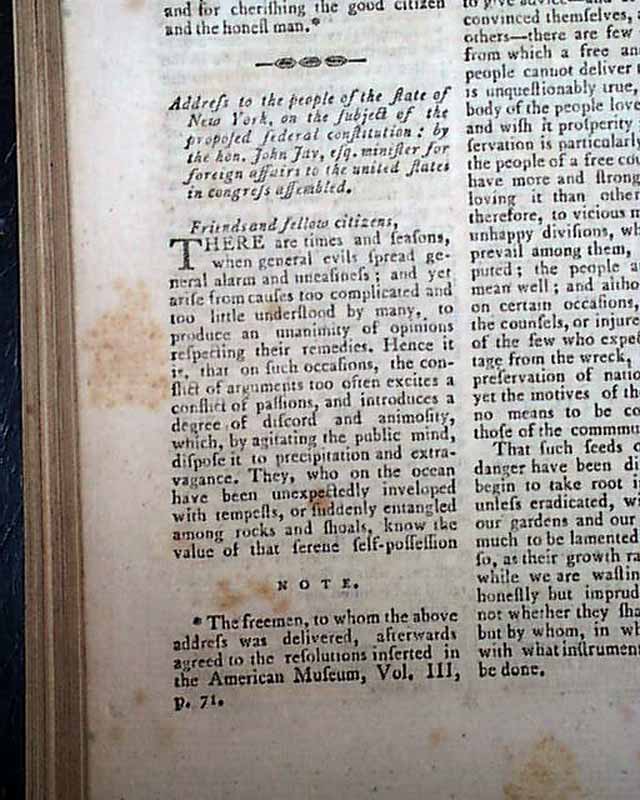 and for cheriſhing the good citizen
and the honeſt man.*
Addreſs to the people of the ſtate of
New York, on the ſubject of the
propoſed federal conſtitution : by
the hon. John Jay, eſq. miniſter for
foreign affairs to the united ſtates
in congreſs aſſembled.
Friends and fellow citizens,
THERE are times and ſeaſons,
when general evils ſpread ge-
neral alarm and uneaſineſs ; and yet
ariſe from cauſes too complicated and
too little underſtood by many, to
produce an unanimity of opinions
reſpecting their remedies. Hence it
is, that on ſuch occaſions, the con-
flict of arguments too often excites a
conflict of paſſions, and introduces a
degree of diſcord and animoſity,
which, by agitating the public mind,
diſpoſe it to precipitation and extra-
vagance. They, who on the ocean
have been unexpectedly inveloped
with tempeſts, or ſuddenly entangled
among rocks and ſhoals, know the
value of that ſerene ſelf-poſſeſſion
NOTE.
* The freemen, to whom the above
addreſs was delivered, afterwards
agreed to the reſolutions inſerted in
the American Muſeum, Vol. III,
p. 71.
to give advice—and
convinced themſelves,
others—there are few
from which a free an
people cannot deliver
is unqueſtionably true,
body of the people love
and wiſh it proſperity
ſervation is particularly
the people of a free cou
have more and ſtrong
loving it than other
therefore, to vicious
unhappy diviſions, wh
prevail among them,
puted ; the people a
mean well ; and altho
on certain occaſions,
the counſels, or injure
of the few who expec
tage from the wreck,
preſervation of natio
yet the motives of th
no means to be co
thoſe of the commmu
That ſuch ſeeds o
danger have been di
begin to take root i
unleſs eradicated, wi
our gardens and our
much to be lamented
ſo, as their growth ra
while we are waſtin
honeſtly but imprud
not whether they ſha
but by whom, in wh
with what inſtrument
be done.